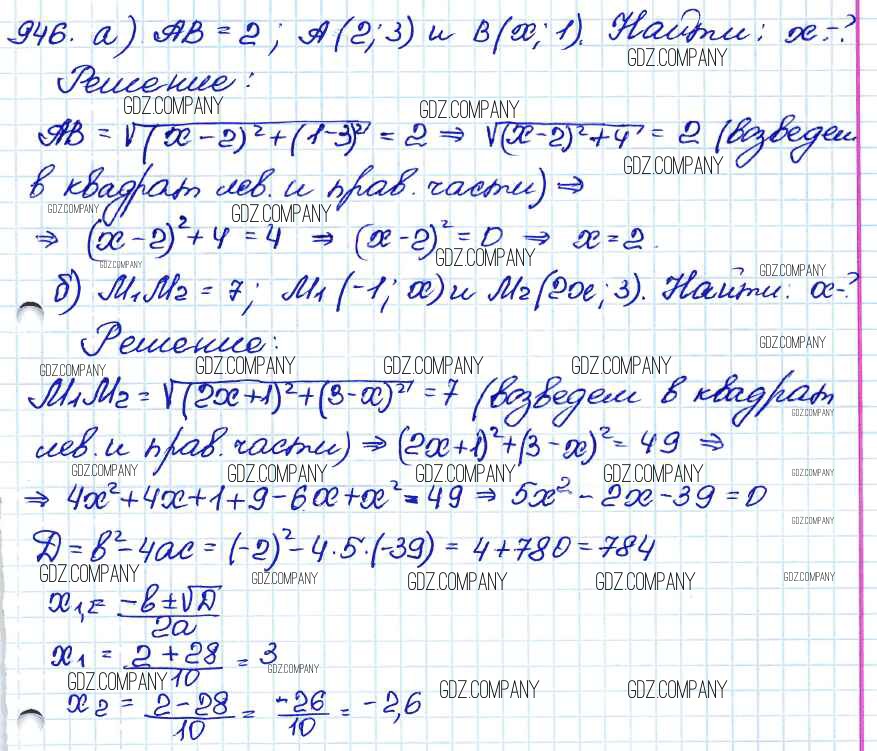 946. а) AB = 2; A(2; 3) и B(x; 1). Найти: x-?
GDZ.COMPANY
Решение:
GDZ.COMPANY GDZ.COMPANY
AB = √((x-2)²+(1-3)²) = 2 ⇒ √((x-2)²+4) = 2 (возведем
GDZ.COMPANY
в квадрат лев. и прав. части) ⇒
GDZ.COMPANY GDZ.COMPANY
⇒ (x-2)²+4 = 4 ⇒ (x-2)² = 0 ⇒ x = 2.
GDZ.COMPANY GDZ.COMPANY GDZ.COMPANY
б) M₁M₂ = 7; M₁(-1; x) и M₂(2x; 3). Найти: x-?
Решение:
GDZ.COMPANY
GDZ.COMPANY GDZ.COMPANY GDZ.COMPANY GDZ.COMPANY
M₁M₂ = √((2x+1)²+(3-x)²) = 7 (возведем в квадрат
GDZ.COMPANY
лев. и прав. части) ⇒ (2x+1)²+(3-x)² = 49 ⇒
GDZ.COMPANY GDZ.COMPANY GDZ.COMPANY GDZ.COMPANY GDZ.COMPANY
⇒ 4x²+4x+1+9-6x+x² = 49 ⇒ 5x²-2x-39 = 0
GDZ.COMPANY
D = b²-4ac = (-2)²-4·5·(-39) = 4+780 = 784
GDZ.COMPANY GDZ.COMPANY GDZ.COMPANY GDZ.COMPANY GDZ.COMPANY
x₁,₂ = (-b±√D)/2a
x₁ = (2+28)/10 = 3
GDZ.COMPANY
GDZ.COMPANY GDZ.COMPANY GDZ.COMPANY
x₂ = (2-28)/10 = -26/10 = -2,6